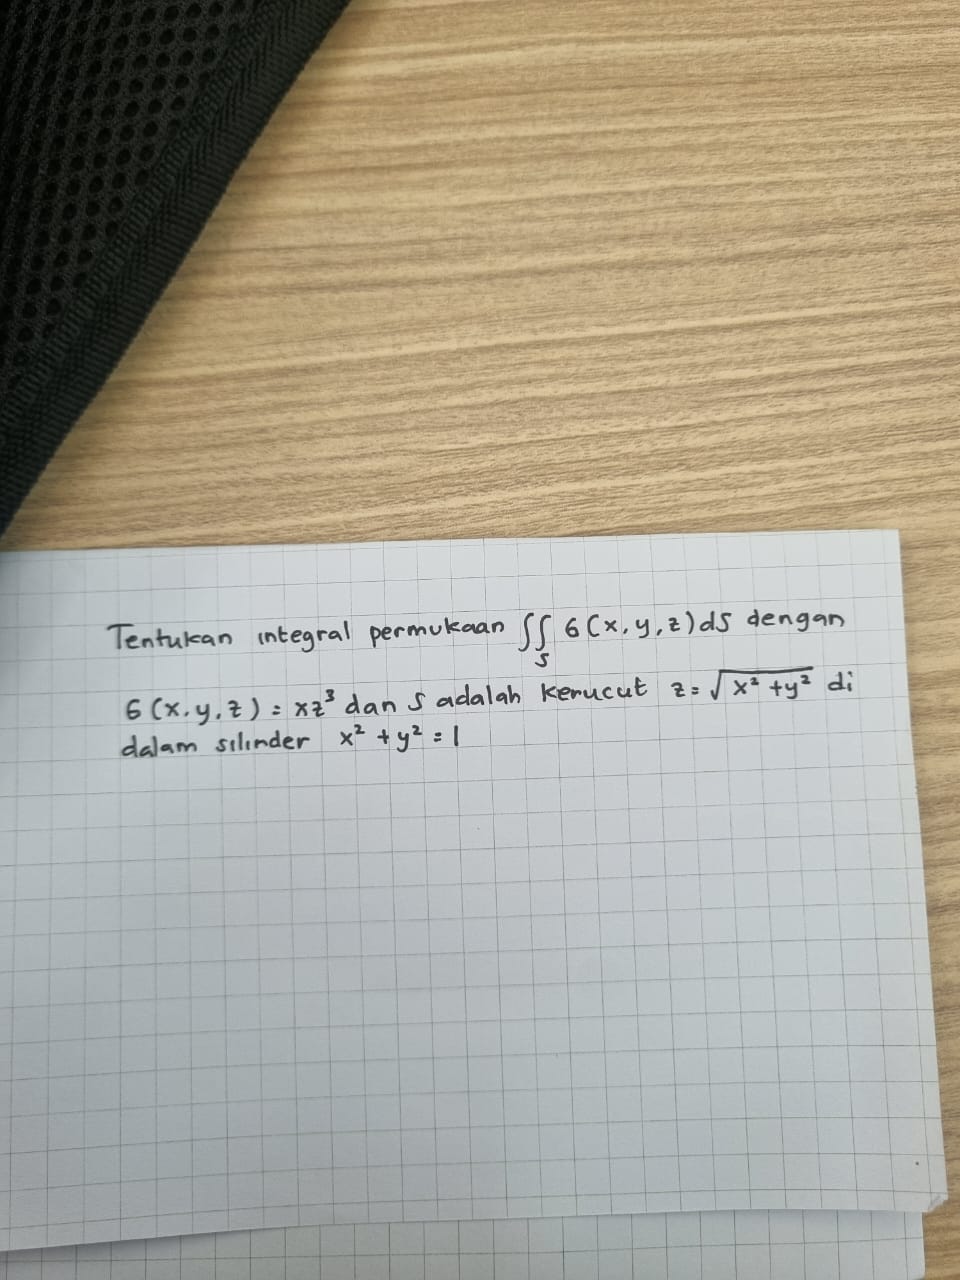 Tentukan integral permukaan ∬_S G(x,y,z)dS dengan
G(x,y,z) = xz³ dan S adalah kerucut z = √(x² + y²) di
dalam silinder x² + y² = 1